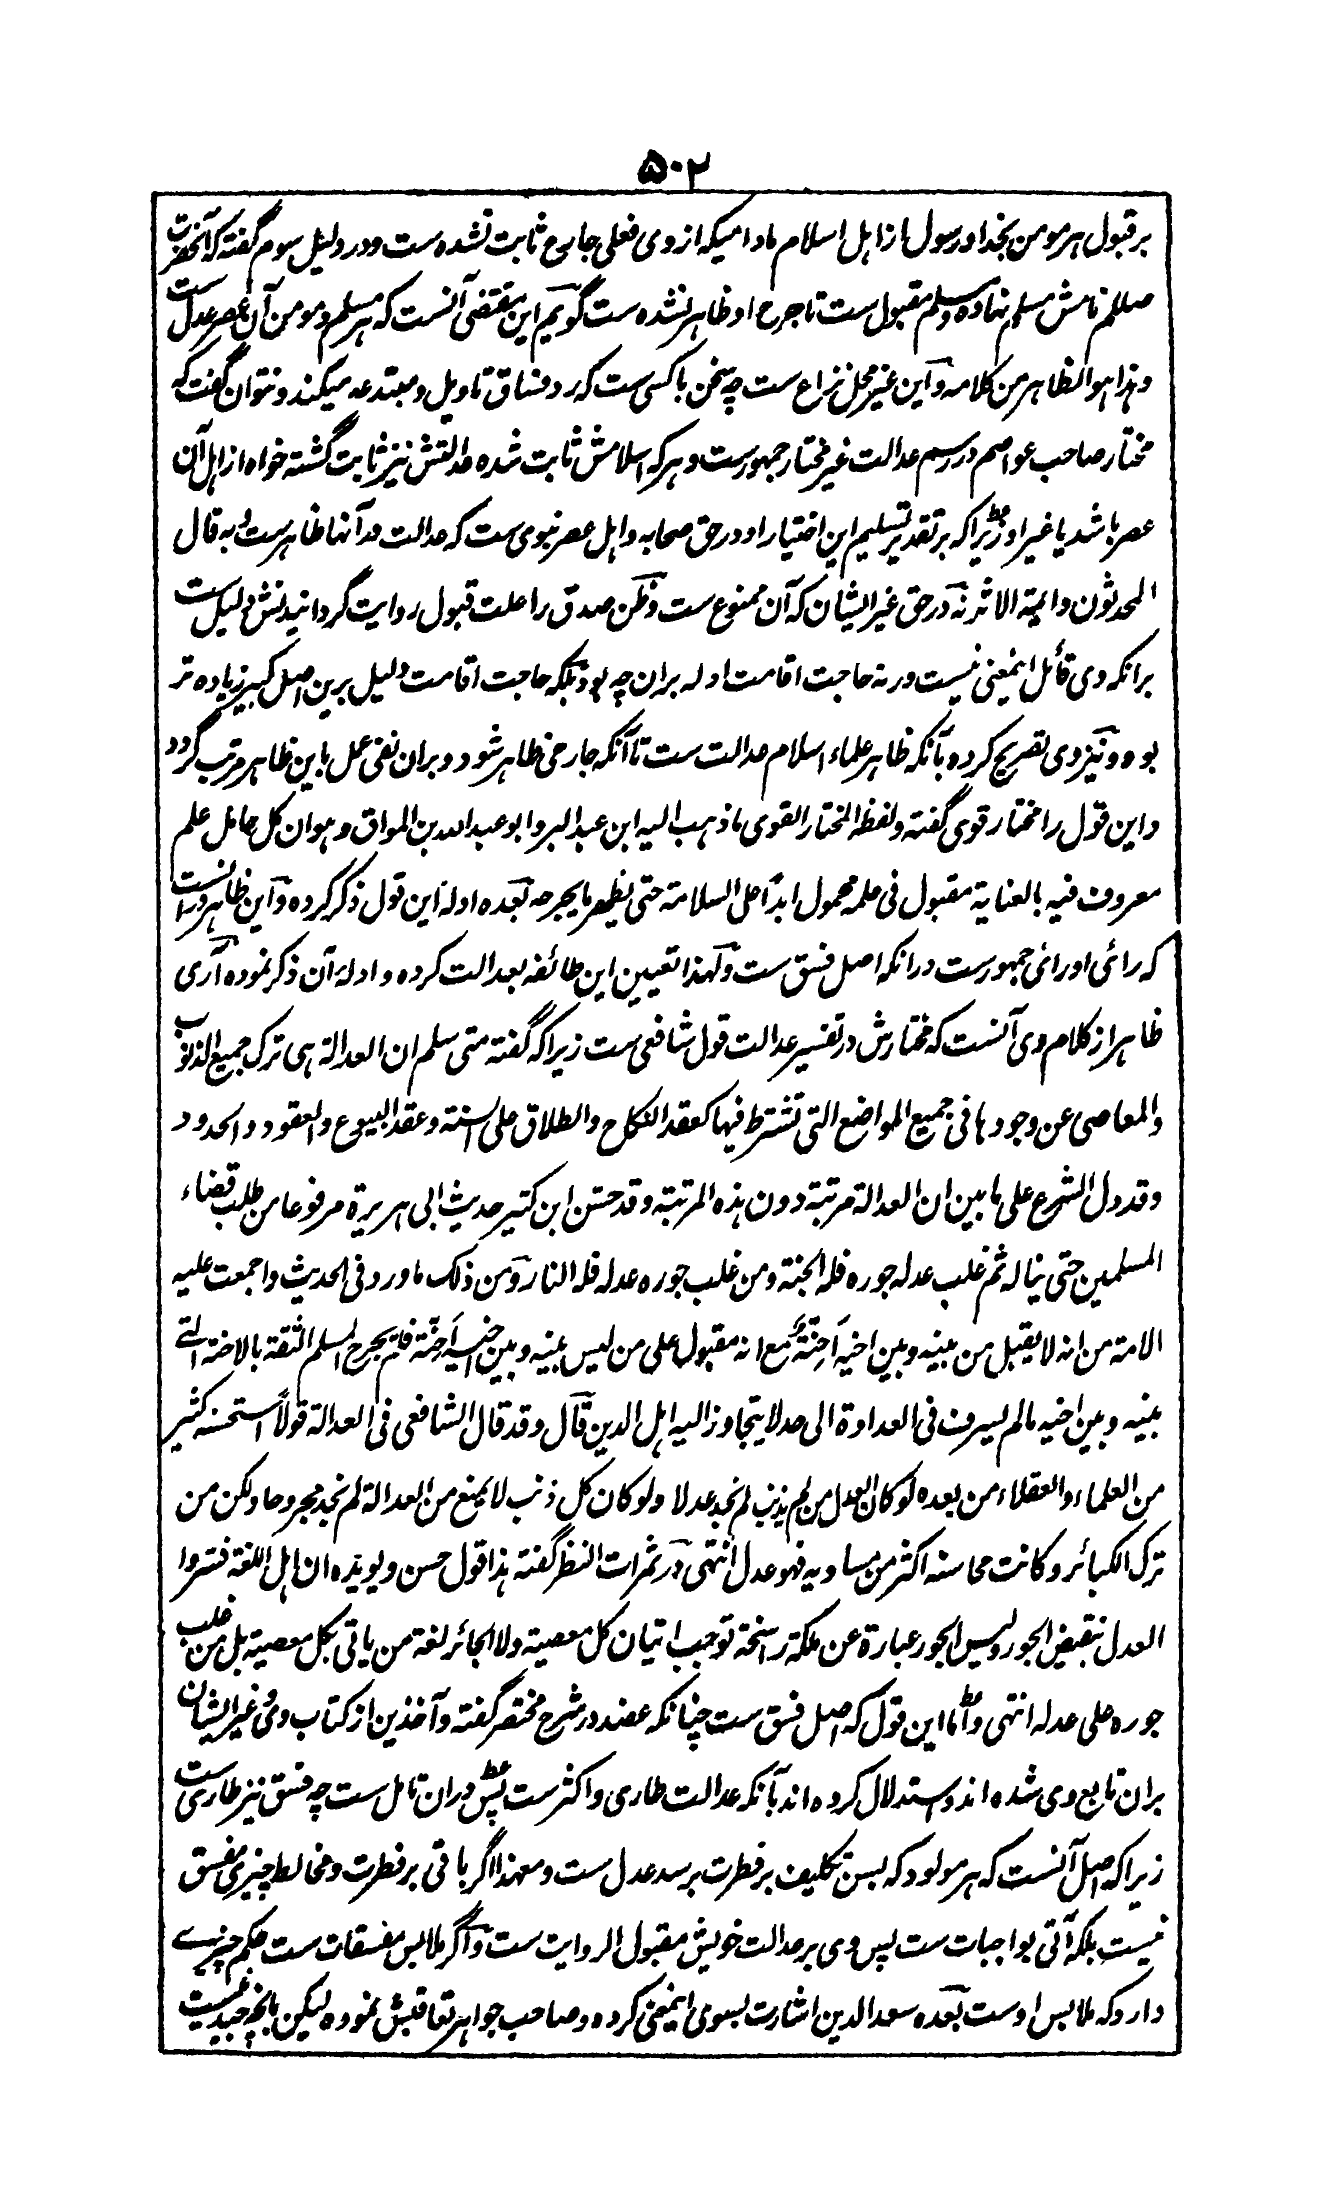 ۵۰۲
بر قبول هر مومن بخدا و رسول از اهل اسلام مادامیکه از وی فعلی جارح ثابت نشده ست و در دلیل سوم گفته که آنحضرت
صللم نامش مسلم نهاده و مسلم مقبول ست تا جرح او ظاهر نشده ست گویم این مقتضی آنست که هر مسلم و مومن آن عصر عدل ست
و هذا هو الظاهر من کلامه و این غیر محل نزاع ست چه سخن با کسی ست که رد فساق تاویل و مبتدعه میکند و نتوان گفت که
مختار صاحب عواصم در رسم عدالت غیر مختار جمهورست و هر که اسلامش ثابت شده عدالتش نیز ثابت گشته خواه از اهل آن
عصر باشد یا غیر او زیراکه بر تقدیر تسلیم این اختیار او در حق صحابه و اهل عصر نبوی ست که عدالت در آنها ظاهرست و به قال
المحدثون و ایمة الاثر نه در حق غیر ایشان که آن ممنوع ست و ظن صدق را علت قبول روایت گردانیدنش دلیل ست
برانکه وی قائل اینمعنی نیست ورنه حاجت اقامت ادله بران چه بود بلکه حاجت اقامت دلیل برین اصل کبیر زیاده تر
بوده و نیز وی تصریح کرده بآنکه ظاهر علماء اسلام عدالت ست تا آنکه جارحی ظاهر شود و بران نفی عمل باین ظاهر مرتب گردد
و این قول را مختار قوی گفته و لفظه المختار القوی ما ذهب الیه ابن عبد البر و ابو عبد الله بن المواق و هو ان کل حامل علم
معروف فیه بالعنایة مقبول فی علمه محمول ابدًا علی السلامة حتی یظهر ما یجرحه بعده ادله این قول ذکر کرده و این ظاهر در آنست
که رائی او رائی جمهورست در انکه اصل فسق ست و لهذا تعیین این طائفه بعدالت کرده و ادله آن ذکر نموده آری
ظاهر از کلام وی آنست که مختارش در تفسیر عدالت قول شافعی ست زیراکه گفته متی سلم ان العدالة هی ترک جمیع الذنوب
والمعاصی عن وجودها فی جمیع المواضع التی تشترط فیها کعقد النکاح والطلاق علی السنة وعقد البیوع والعقود والحدود
وقد دل الشرع علی ما بین ان العدالة مرتبة دون هذه المرتبة وقد حسّن ابن کثیر حدیث ابی هریرة مرفوعا من طلب قضاء
المسلمین حتی یناله ثم غلب عدله جوره فله الجنة ومن غلب جوره عدله فله النار ومن ذلک ما ورد فی الحدیث واجمعت علیه
الامة من انه لا یقبل من بینه وبین اخیه اَحِنَّةٌ مع انه مقبول علی من لیس بینه وبین اخیه اَحِنّة فلم یجرح المسلم الثقة بالاحنة التی
بینه وبین اخیه مالم یسرف فی العداوة الی حد لا یتجاوز الیه اهل الدین قال وقد قال الشافعی فی العدالة قولاً استحسنه کثیر
من العلماء والعقلاء من بعده لو کان العدل من لم یذنب لم نجد عدلا ولو کان کل ذنب لا یمنع من العدالة لم نجد مجروحا ولکن من
ترک الکبائر وکانت محاسنه اکثر من مساویه فهو عدل انتهی در ثمرات النظر گفته هذا قول حسن ویویده ان اهل اللغة فسّروا
العدل بنقیض الجور ولیس الجور عبارة عن ملکة راسخة توجب اتیان کل معصیة ولا الجائر لغة من یاتی بکل معصیة بل من غلب
جوره علی عدله انتهی و اما این قول که اصل فسق ست چنانکه عضد در شرح مختصر گفته و آخذین از کتاب وی و غیر ایشان
بران تابع وی شده اند و استدلال کرده اند بآنکه عدالت طاری و اکثرست پس دران تامل ست چه فسق نیز طاری ست
زیراکه اصل آنست که هر مولود که بسن تکلیف بر فطرت برسد عدل ست و معهذا اگر باقی بر فطرت و مخالط چیزی مفسق
نیست بلکه آتی بواجبات ست پس وی بر عدالت خویش مقبول الروایت ست و اگر ملابس مفسقات ست حکم چیزے
دارد که ملابس اوست بعده سعد الدین اشارت بسوی اینمعنی کرده و صاحب جواهر تعاقبش نموده لیکن بانچه جید نیست